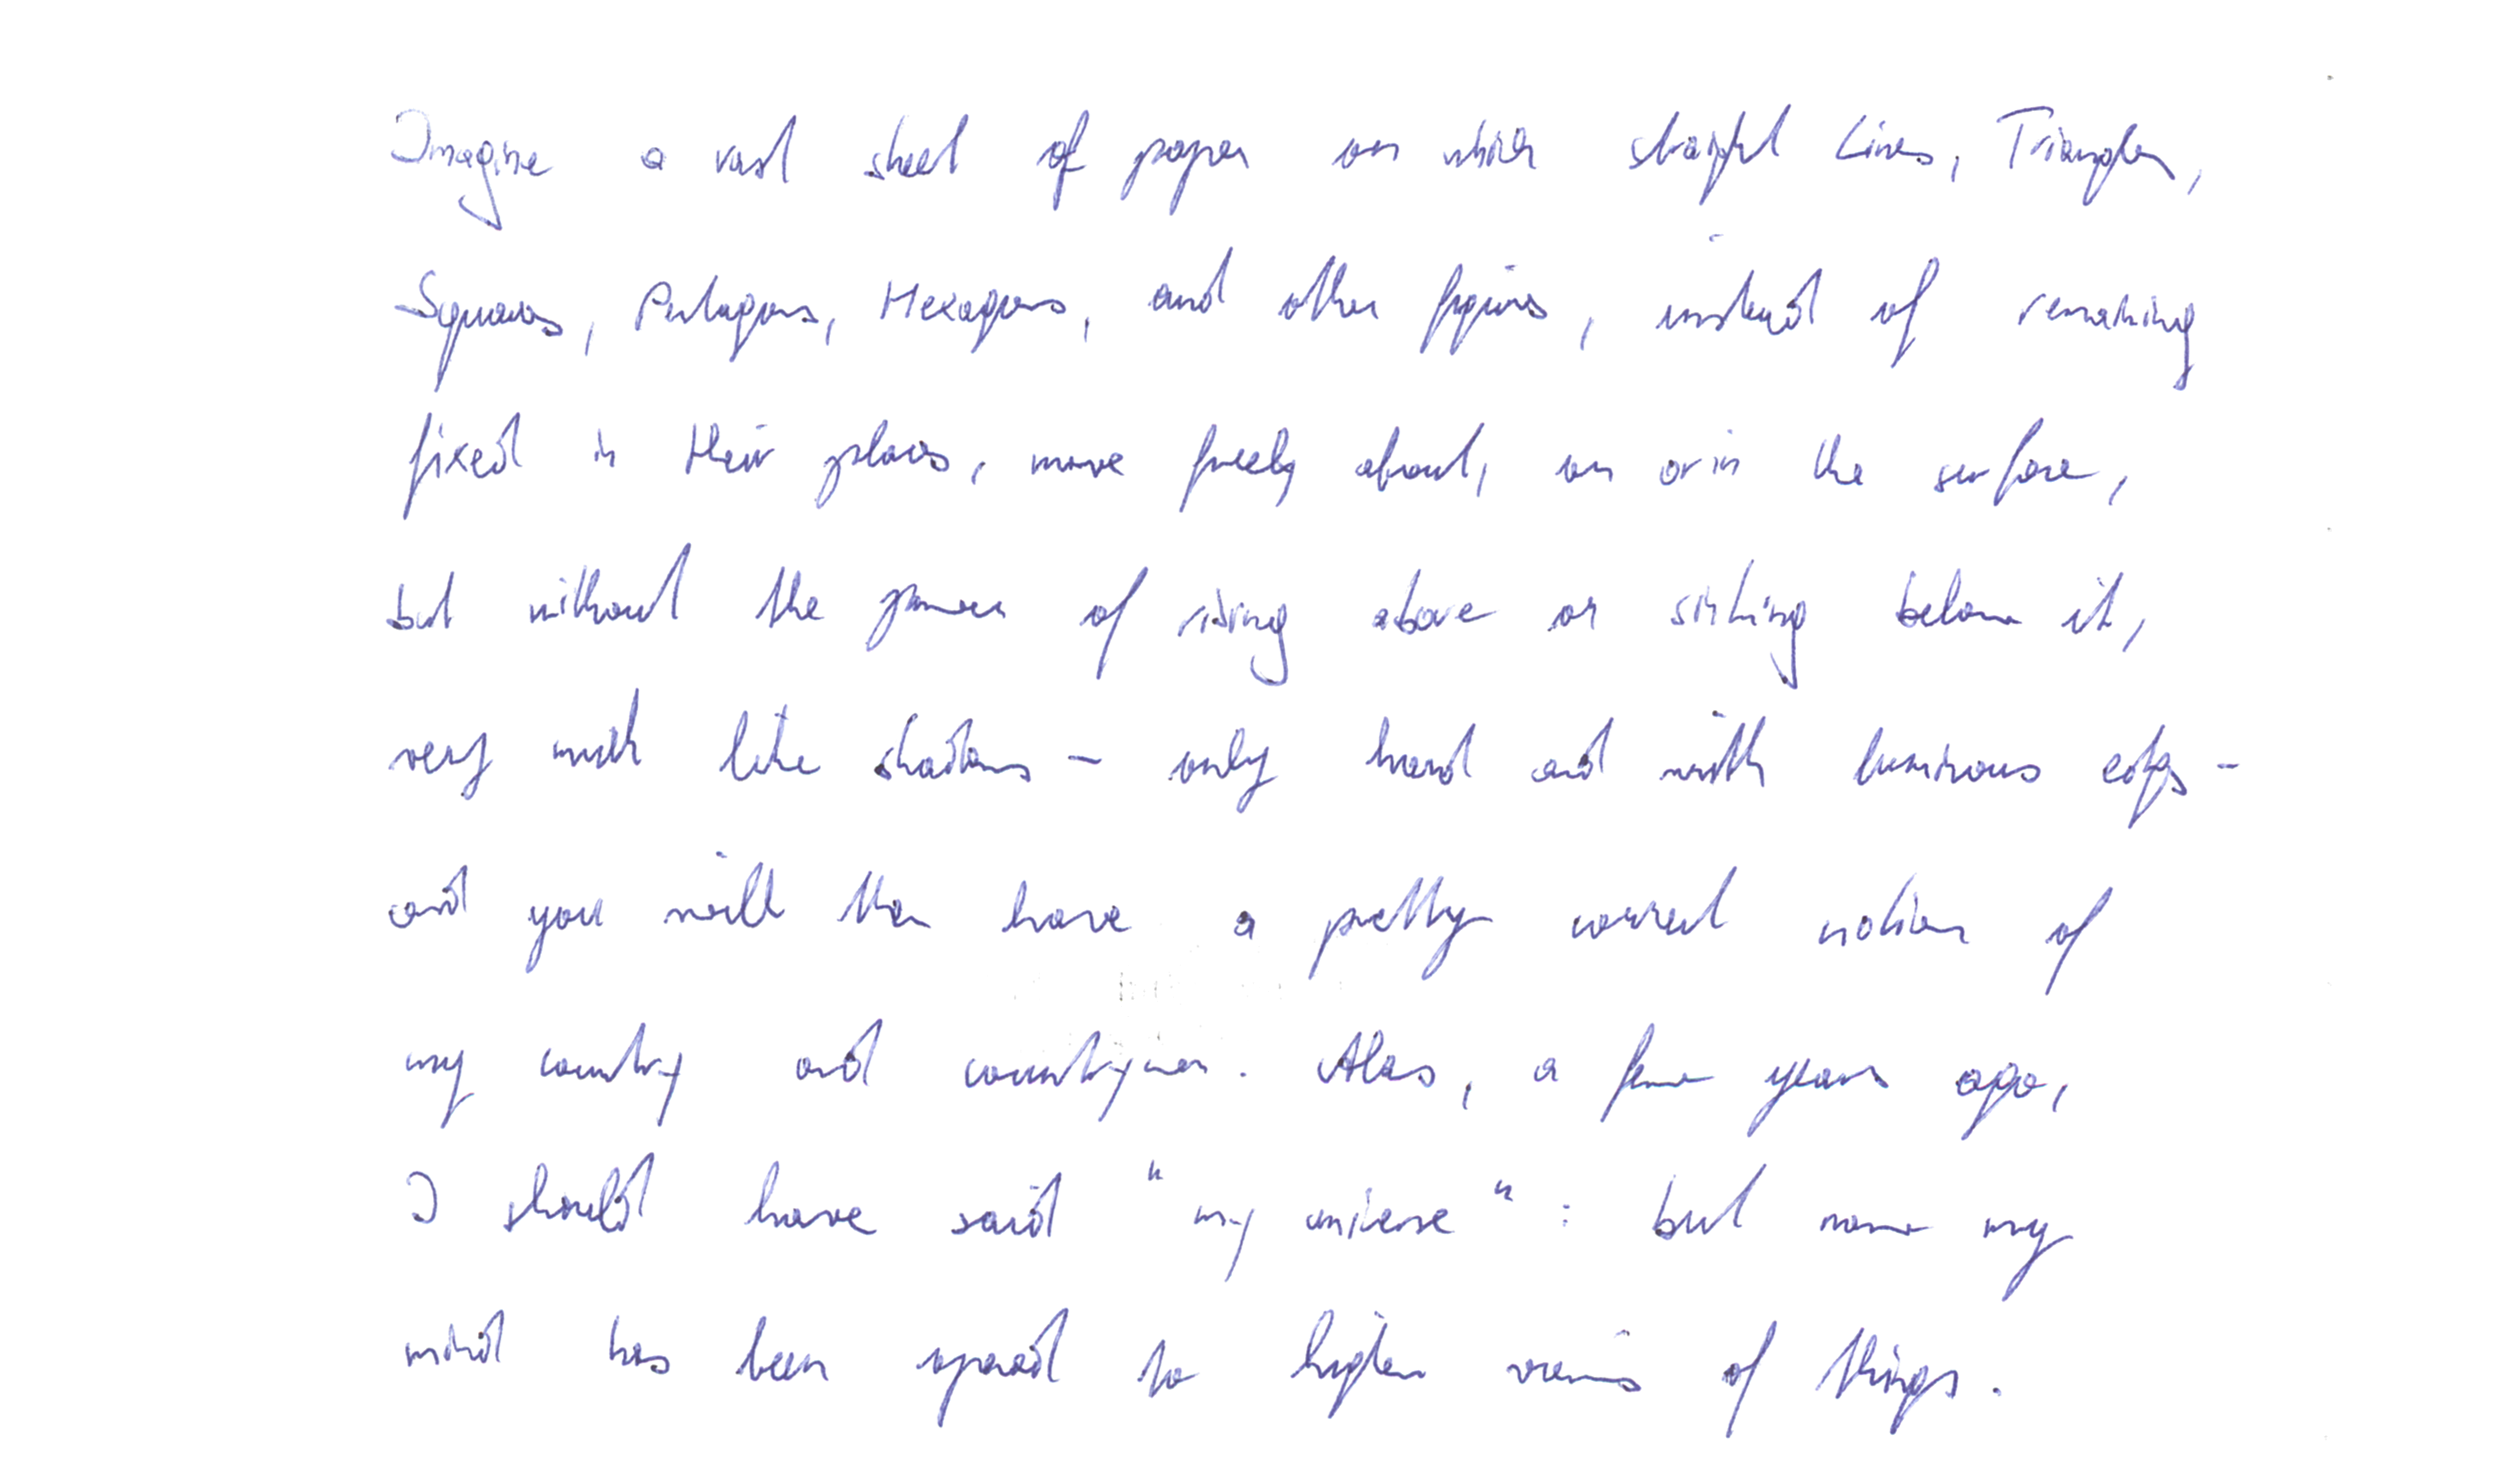 Imagine a vast sheet of paper on which straight Lines, Triangles,
Squares, Pentagons, Hexagons, and other figures, instead of remaining
fixed in their places, move freely about, on or in the surface,
but without the power of rising above or sinking below it,
very much like shadows - only hard and with luminous edges -
and you will then have a pretty correct notion of
my country and countrymen. Alas, a few years ago,
I should have said "my universe": but now my
mind has been opened to higher views of things.